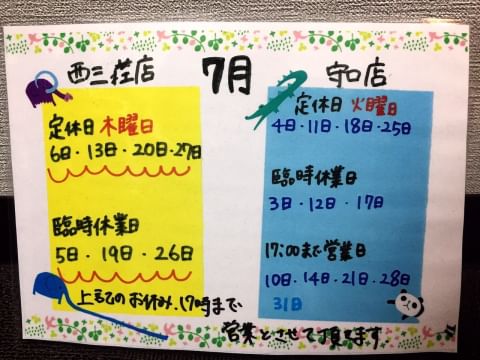 西三荘店
7月
守口店
定休日 木曜日
6日・13日・20日・27日
臨時休業日
5日・19日・26日
定休日 火曜日
4日・11日・18日・25日
臨時休業日
3日・12日・17日
17:00まで営業日
10日・14日・21日・28日
31日
上記のお休み、17時まで
営業とさせて頂きます